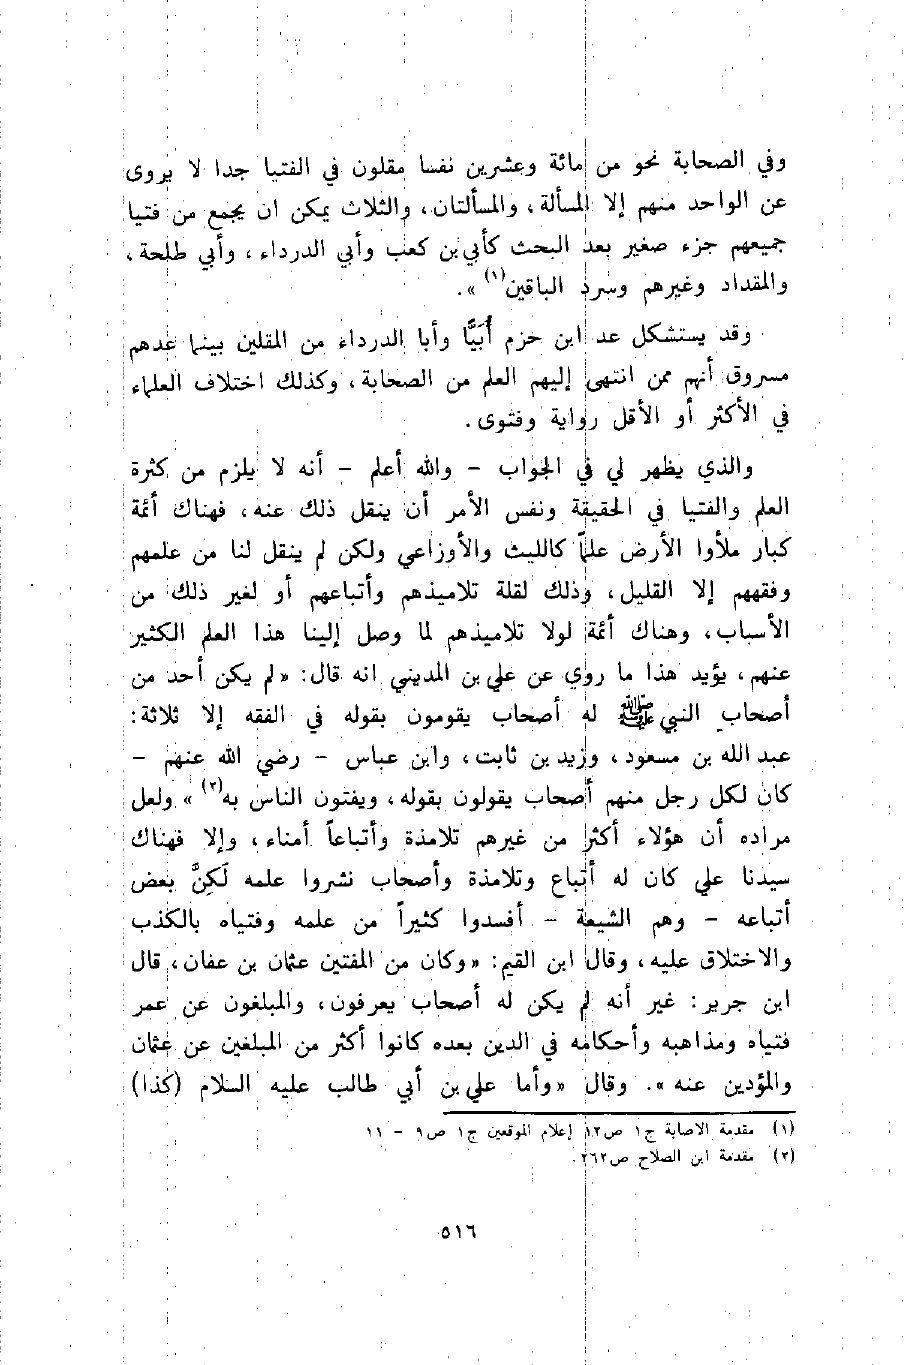 وفي الصحابة نحو من مائة وعشرين نفسا مقلون في الفتيا جدا لا يروى
عن الواحد منهم إلا المسألة، والمسألتان، والثلاث يمكن ان يجمع من فتيا
جميعهم جزء صغير بعد البحث كأبي بن كعب وأبي الدرداء، وأبي طلحة،
والمقداد وغيرهم وسرد الباقين(١)».
وقد يستشكل عد ابن حزم أُبَيًّا وأبا الدرداء من المقلين بينما عدهم
مسروق أنهم ممن انتهى إليهم العلم من الصحابة، وكذلك اختلاف العلماء
في الأكثر أو الأقل رواية وفتوى.
والذي يظهر لي في الجواب - والله أعلم - أنه لا يلزم من كثرة
العلم والفتيا في الحقيقة ونفس الأمر أن ينقل ذلك عنه، فهناك أئمة
كبار ملأوا الأرض علماً كالليث والأوزاعي ولكن لم ينقل لنا من علمهم
وفقههم إلا القليل، وذلك لقلة تلاميذهم وأتباعهم أو لغير ذلك من
الأسباب، وهناك أئمة لولا تلاميذهم لما وصل إلينا هذا العلم الكثير
عنهم، يؤيد هذا ما روي عن علي بن المديني انه قال: «لم يكن أحد من
أصحاب النبي ﷺ له أصحاب يقومون بقوله في الفقه إلا ثلاثة:
عبد الله بن مسعود، وزيد بن ثابت، وابن عباس - رضي الله عنهم -
كان لكل رجل منهم أصحاب يقولون بقوله، ويفتون الناس به(٢)» ولعل
مراده أن هؤلاء أكثر من غيرهم تلامذة وأتباعاً أمناء، وإلا فهناك
سيدنا علي كان له أتباع وتلامذة وأصحاب نشروا علمه لَكِنَّ بعض
أتباعه - وهم الشيعة - أفسدوا كثيراً من علمه وفتياه بالكذب
والاختلاق عليه، وقال ابن القيم: «وكان من المفتين عثمان بن عفان، قال
ابن جرير: غير أنه لم يكن له أصحاب يعرفون، والمبلغون عن عمر
فتياه ومذاهبه وأحكامه في الدين بعده كانوا أكثر من المبلغين عن عثمان
والمؤدين عنه». وقال «وأما علي بن أبي طالب عليه السلام (كذا)
(١) مقدمة الاصابة ج١ ص١٢ إعلام الموقعين ج١ ص٩ - ١١
(٢) مقدمة ابن الصلاح ص٢٦٢.
٥١٦